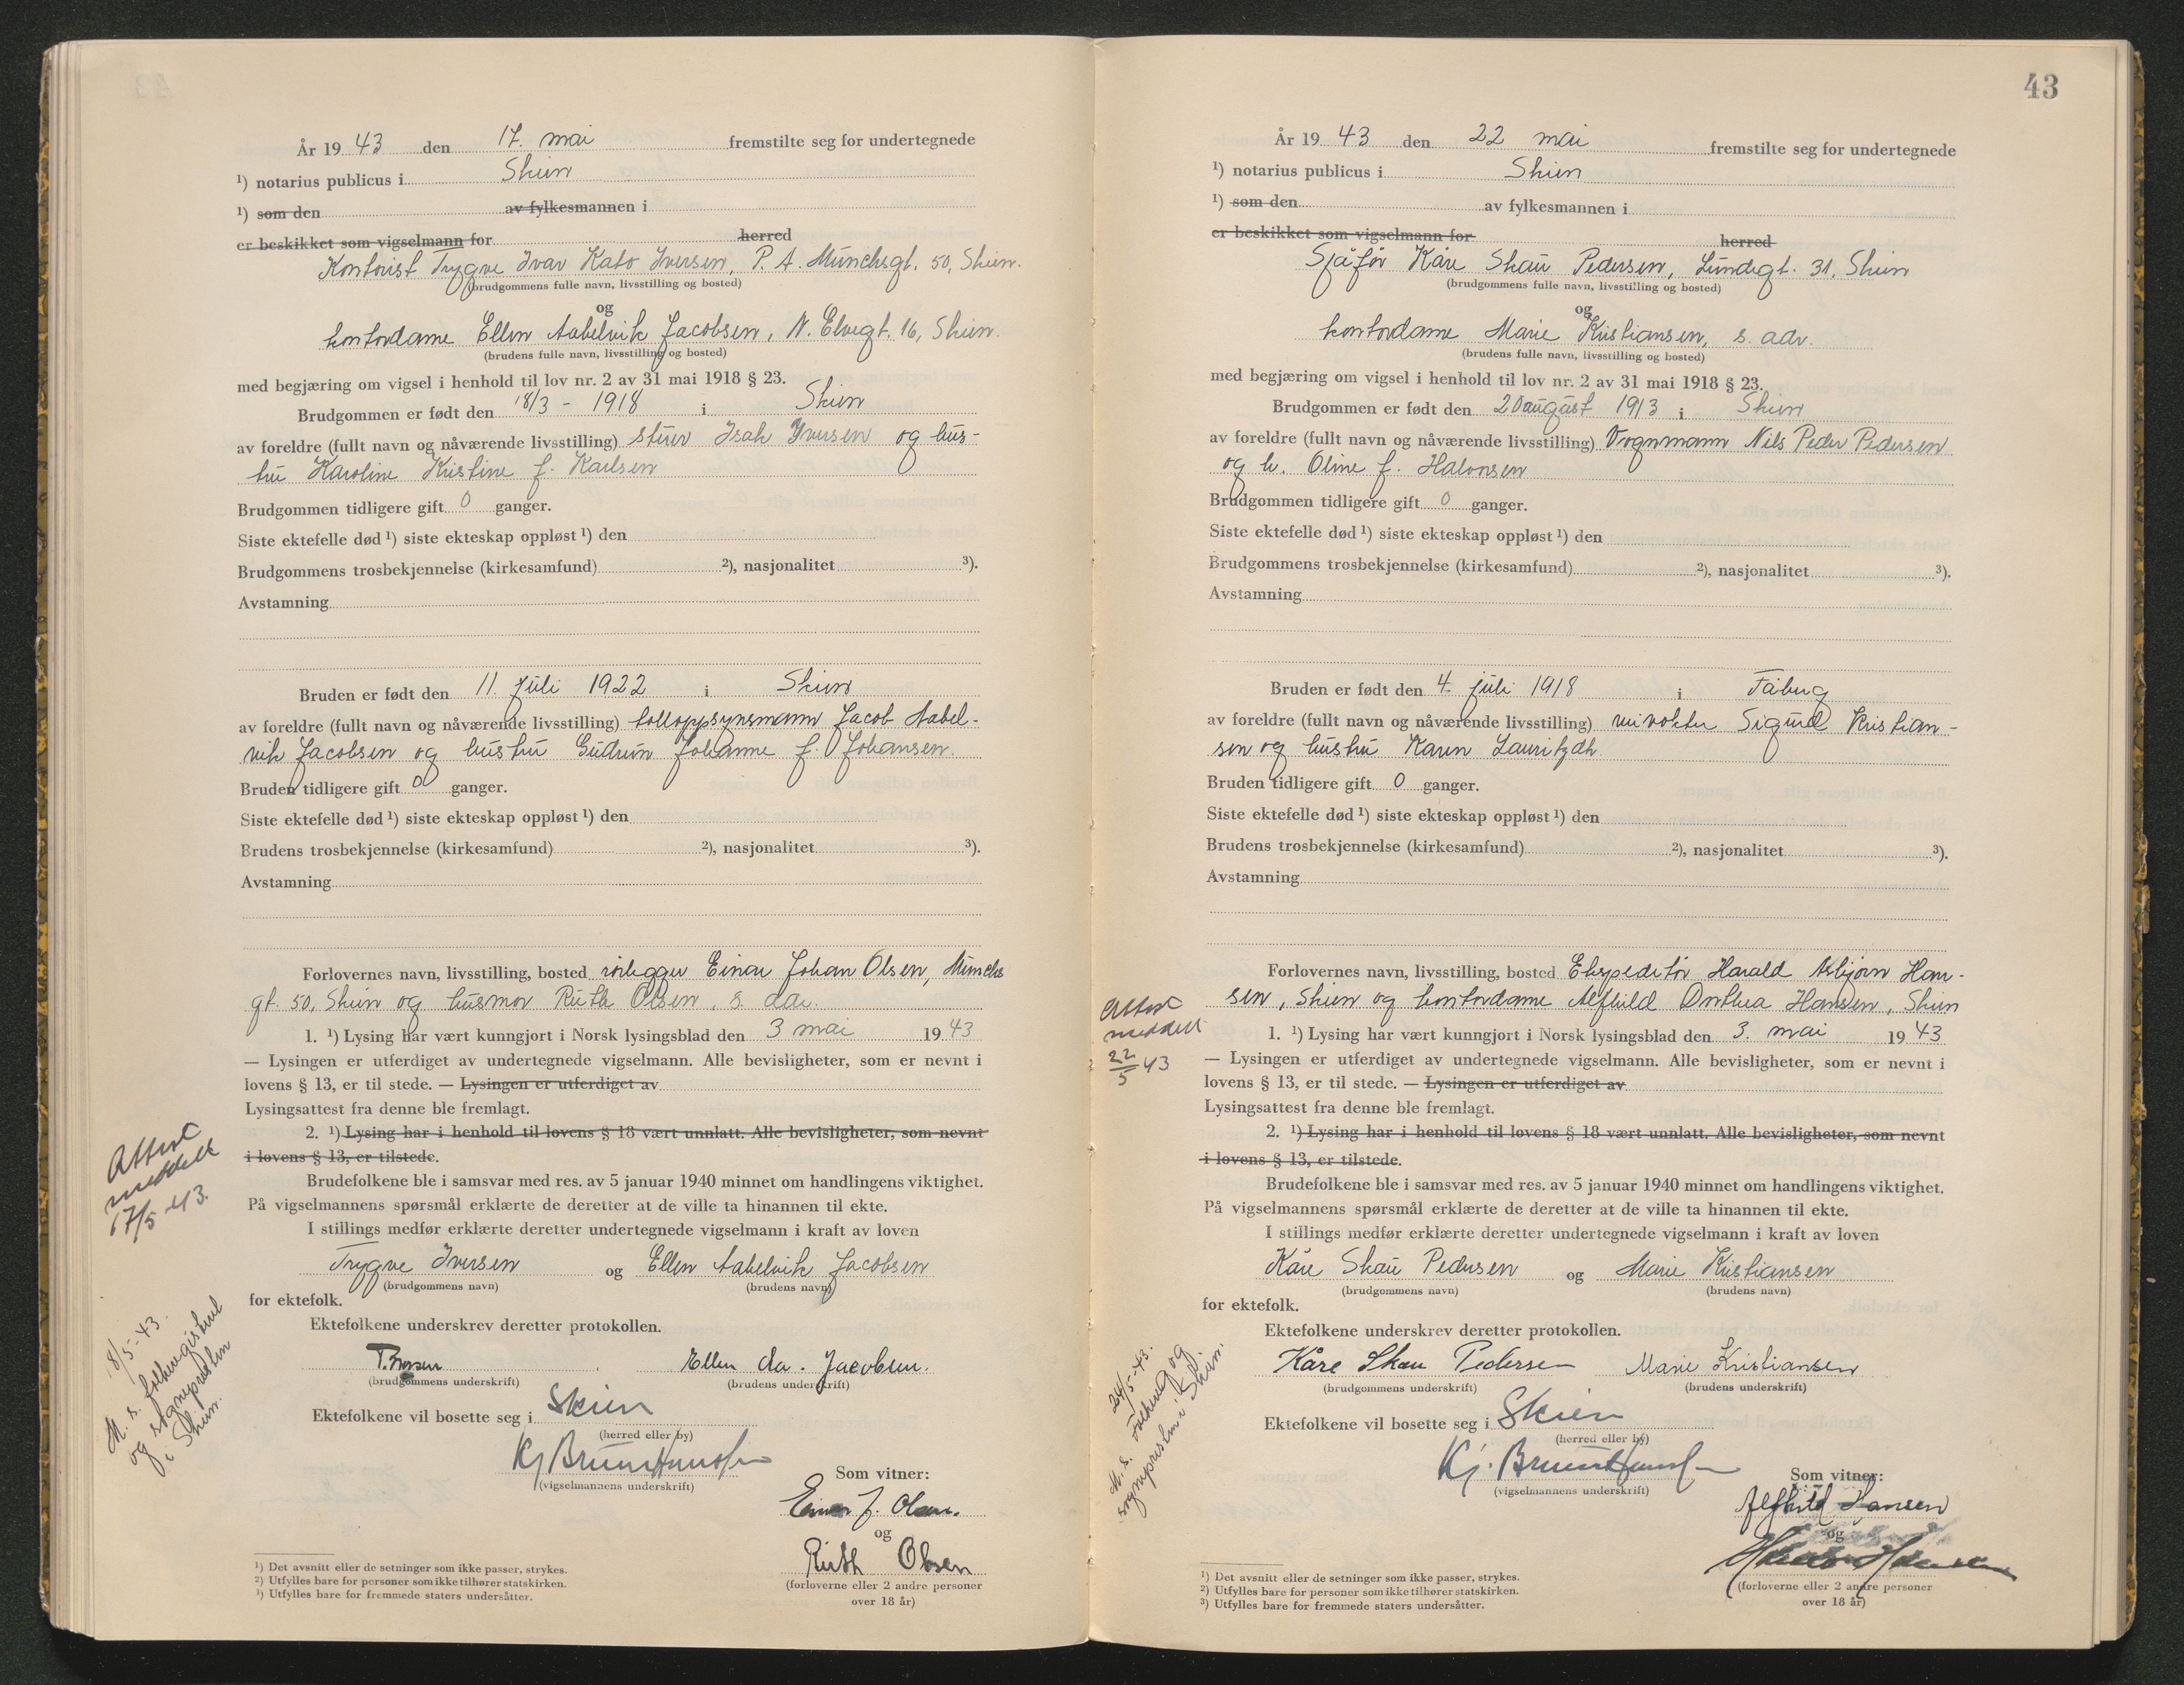 År 19 43 den 17. mai fremstilte seg for undertegnede
¹) notarius publicus i Skien
¹) som den av fylkesmannen i
er beskikket som vigselmann for herred
Kontorist Trygve Ivar Kato Iversen, P. A. Munchsgt. 50, Skien.
(brudgommens fulle navn, livsstilling og bosted)
og
kontordame Ellen Aabelvik Jacobsen, N. Elvegt. 16, Skien.
(brudens fulle navn, livsstilling og bosted)
med begjæring om vigsel i henhold til lov nr. 2 av 31 mai 1918 § 23.
Brudgommen er født den 18/3 - 1918 i Skien
av foreldre (fullt navn og nåværende livsstilling) stuer Isak Iversen og hus-
tru Karoline Kristine f. Karlsen
Brudgommen tidligere gift 0 ganger.
Siste ektefelle død ¹) siste ekteskap oppløst ¹) den
Brudgommens trosbekjennelse (kirkesamfund) ²), nasjonalitet ³).
Avstamning
Bruden er født den 11. juli 1922 i Skien
av foreldre (fullt navn og nåværende livsstilling) tolloppsynsmann Jacob Aabel-
vik Jacobsen og hustru Gudrun Johanne f. Johansen.
Bruden tidligere gift 0 ganger.
Siste ektefelle død ¹) siste ekteskap oppløst ¹) den
Brudens trosbekjennelse (kirkesamfund) ²), nasjonalitet ³).
Avstamning
Forlovernes navn, livsstilling, bosted rørlegger Einar Johan Olsen, Munchs
gt. 50, Skien og husmor Ruth Olsen, s. adr.
1. ¹) Lysing har vært kunngjort i Norsk lysingsblad den 3 mai 19 43
— Lysingen er utferdiget av undertegnede vigselmann. Alle bevisligheter, som er nevnt i
lovens § 13, er til stede. — Lysingen er utferdiget av
Lysingsattest fra denne ble fremlagt.
2. ¹) Lysing har i henhold til lovens § 18 vært unnlatt. Alle bevisligheter, som nevnt
i lovens § 13, er tilstede.
Brudefolkene ble i samsvar med res. av 5 januar 1940 minnet om handlingens viktighet.
På vigselmannens spørsmål erklærte de deretter at de ville ta hinannen til ekte.
I stillings medfør erklærte deretter undertegnede vigselmann i kraft av loven
Trygve Iversen og Ellen Aabelvik Jacobsen
(brudgommens navn) (brudens navn)
for ektefolk.
Ektefolkene underskrev deretter protokollen.
T. Iversen Ellen Aa. Jacobsen.
(brudgommens underskrift) (brudens underskrift)
Ektefolkene vil bosette seg i Skien
(herred eller by)
Kj Bruun Hansen
(vigselmannens underskrift)
Som vitner:
Einar J. Olsen.
og
Ruth Olsen
(forloverne eller 2 andre personer
over 18 år)
¹) Det avsnitt eller de setninger som ikke passer, strykes.
²) Utfylles bare for personer som ikke tilhører statskirken.
³) Utfylles bare for fremmede staters undersåtter.
Attest
meddelt
17/5 43.
18/5-43.
M. s. folkeregistret
og sognepresten
i Skien.
43
År 19 43 den 22 mai fremstilte seg for undertegnede
¹) notarius publicus i Skien
¹) som den av fylkesmannen i
er beskikket som vigselmann for herred
Sjåfør Kåre Skau Pedersen, Lundegt. 31, Skien
(brudgommens fulle navn, livsstilling og bosted)
og
kontordame Marie Kristiansen, s. adr.
(brudens fulle navn, livsstilling og bosted)
med begjæring om vigsel i henhold til lov nr. 2 av 31 mai 1918 § 23.
Brudgommen er født den 20 august 1913 i Skien
av foreldre (fullt navn og nåværende livsstilling) Vognmann Nils Peder Pedersen
og h. Oline f. Halvorsen
Brudgommen tidligere gift 0 ganger.
Siste ektefelle død ¹) siste ekteskap oppløst ¹) den
Brudgommens trosbekjennelse (kirkesamfund) ²), nasjonalitet ³).
Avstamning
Bruden er født den 4. juli 1918 i Fåberg
av foreldre (fullt navn og nåværende livsstilling) veivokter Sigurd Kristian-
sen og hustru Karen
Bruden tidligere gift 0 ganger.
Siste ektefelle død ¹) siste ekteskap oppløst ¹) den
Brudens trosbekjennelse (kirkesamfund) ²), nasjonalitet ³).
Avstamning
Forlovernes navn, livsstilling, bosted Ekspeditør Harald Asbjørn Han-
sen, Skien og kontordame Alfhild Onthea Hansen, Skien
1. ¹) Lysing har vært kunngjort i Norsk lysingsblad den 3. mai 19 43
— Lysingen er utferdiget av undertegnede vigselmann. Alle bevisligheter, som er nevnt i
lovens § 13, er til stede. — Lysingen er utferdiget av
Lysingsattest fra denne ble fremlagt.
2. ¹) Lysing har i henhold til lovens § 18 vært unnlatt. Alle bevisligheter, som nevnt
i lovens § 13, er tilstede.
Brudefolkene ble i samsvar med res. av 5 januar 1940 minnet om handlingens viktighet.
På vigselmannens spørsmål erklærte de deretter at de ville ta hinannen til ekte.
I stillings medfør erklærte deretter undertegnede vigselmann i kraft av loven
Kåre Skau Pedersen og Marie Kristiansen
(brudgommens navn) (brudens navn)
for ektefolk.
Ektefolkene underskrev deretter protokollen.
Kåre Skau Pedersen Marie Kristiansen
(brudgommens underskrift) (brudens underskrift)
Ektefolkene vil bosette seg i Skien
(herred eller by)
Kj. Bruun Hansen
(vigselmannens underskrift)
Som vitner:
Alfhild Hansen
og
Harald Hansen
(forloverne eller 2 andre personer
over 18 år)
¹) Det avsnitt eller de setninger som ikke passer, strykes.
²) Utfylles bare for personer som ikke tilhører statskirken.
³) Utfylles bare for fremmede staters undersåtter.
Attest
meddelt
22/5 43
24/5-43.
M. s. folkereg og
sognepresten i Skien.